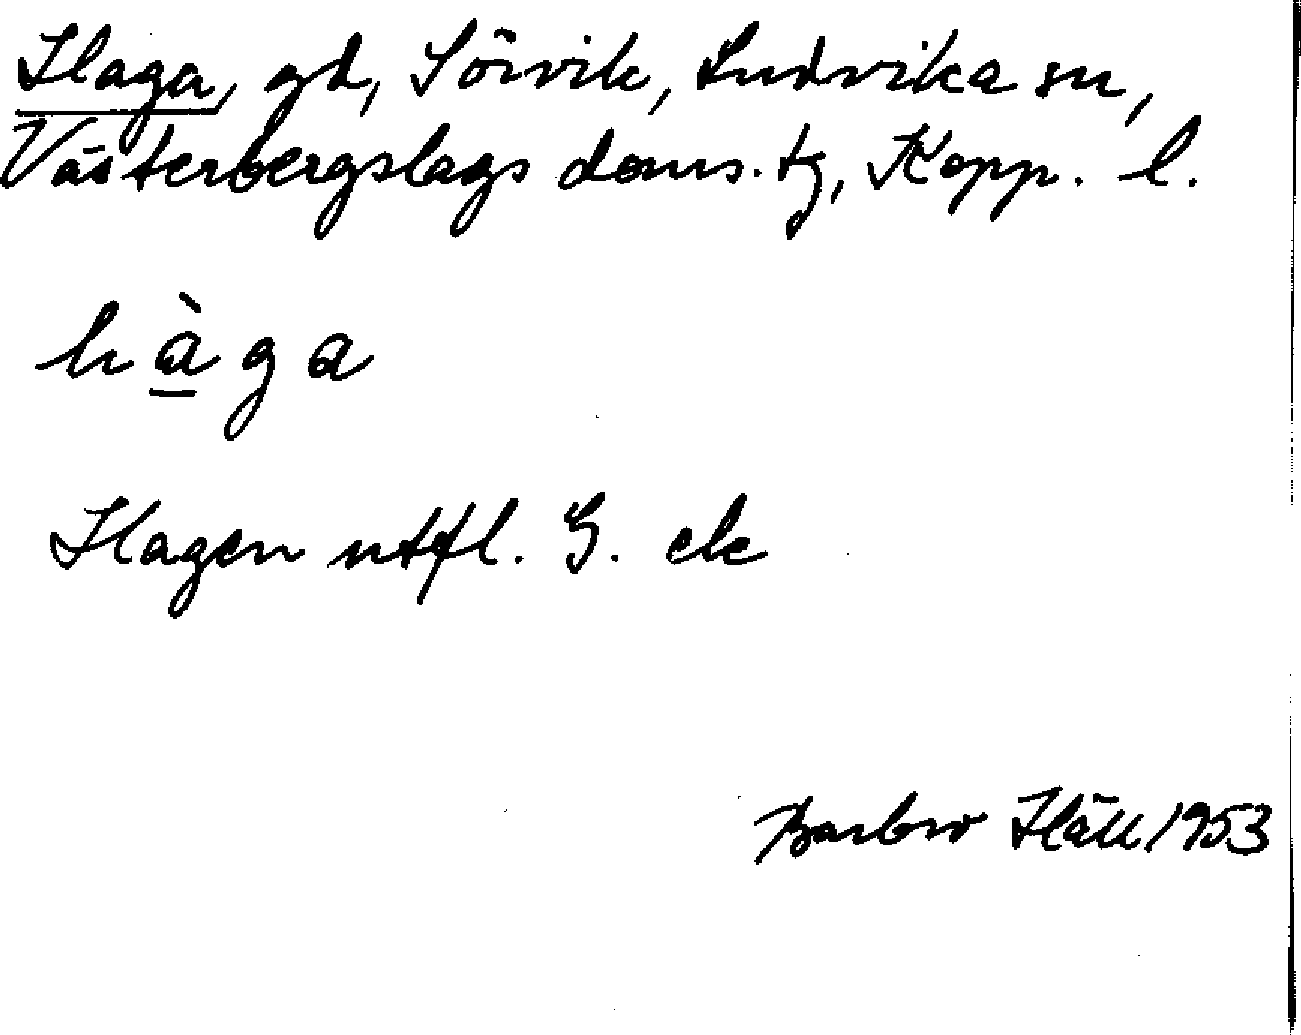 Haga, gd, Sörvik, Ludvika sn,
Västerbergslags doms. tg, Kopp. l.
hàga
Hagen uttl. G. ek
Barbro Häll 1953